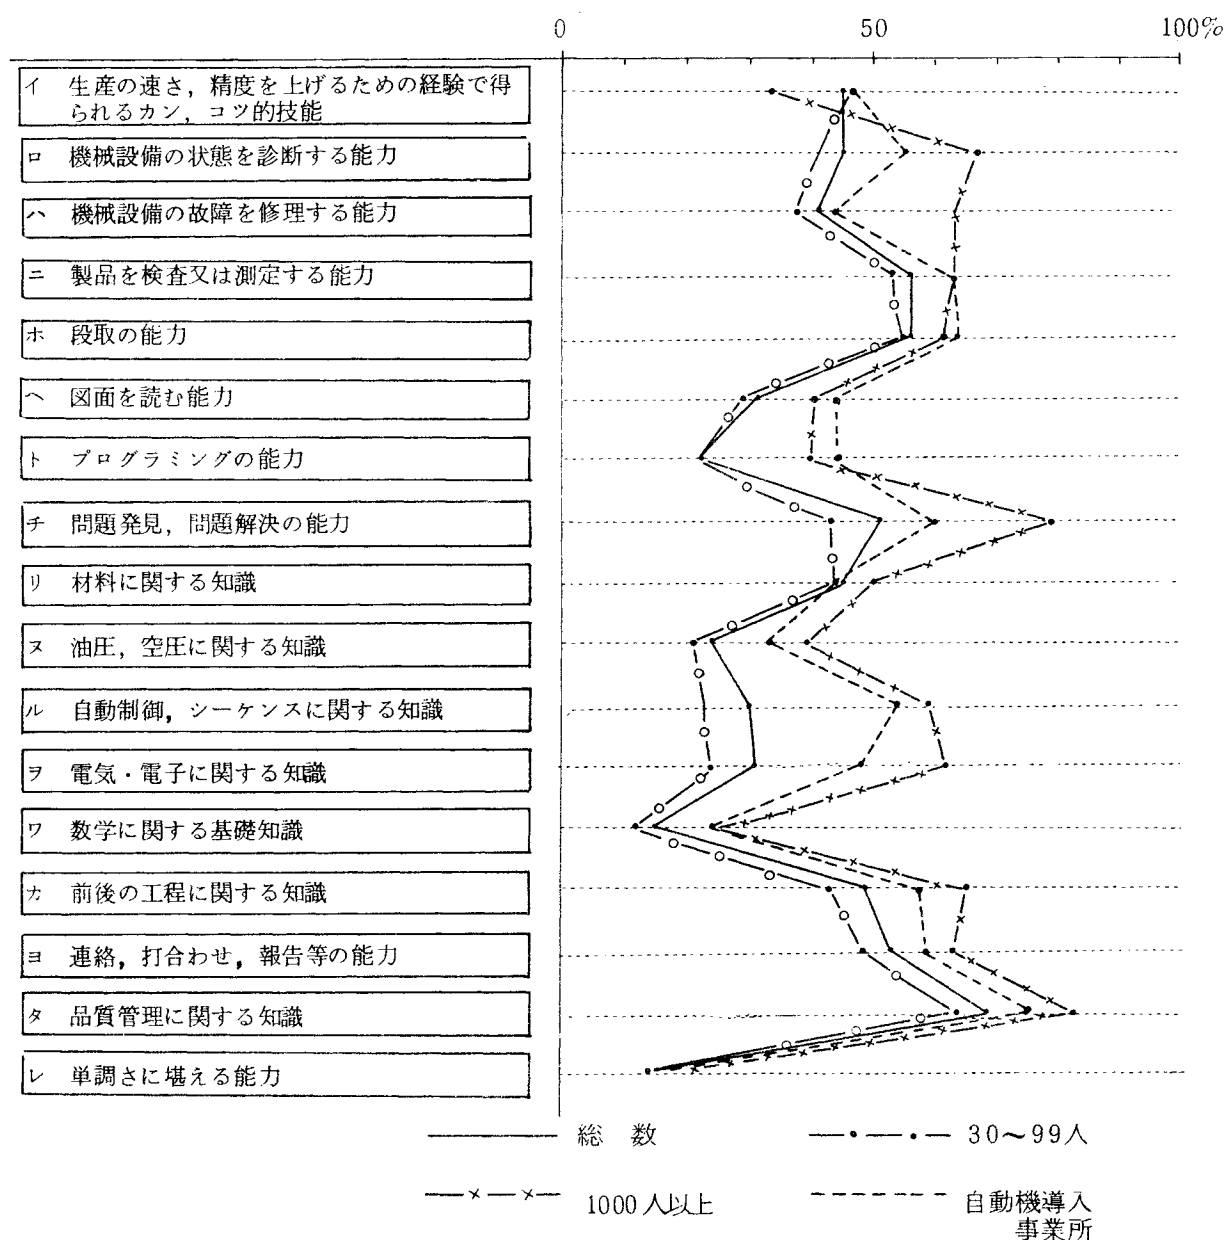 0 50 100%
イ 生産の速さ，精度を上げるための経験で得
られるカン，コツ的技能
ロ 機械設備の状態を診断する能力
ハ 機械設備の故障を修理する能力
ニ 製品を検査又は測定する能力
ホ 段取の能力
ヘ 図面を読む能力
ト プログラミングの能力
チ 問題発見，問題解決の能力
リ 材料に関する知識
ヌ 油圧，空圧に関する知識
ル 自動制御，シーケンスに関する知識
ヲ 電気・電子に関する知識
ワ 数学に関する基礎知識
カ 前後の工程に関する知識
ヨ 連絡，打合わせ，報告等の能力
タ 品質管理に関する知識
レ 単調さに堪える能力
総 数
30～99人
1000人以上
自動機導入
事業所